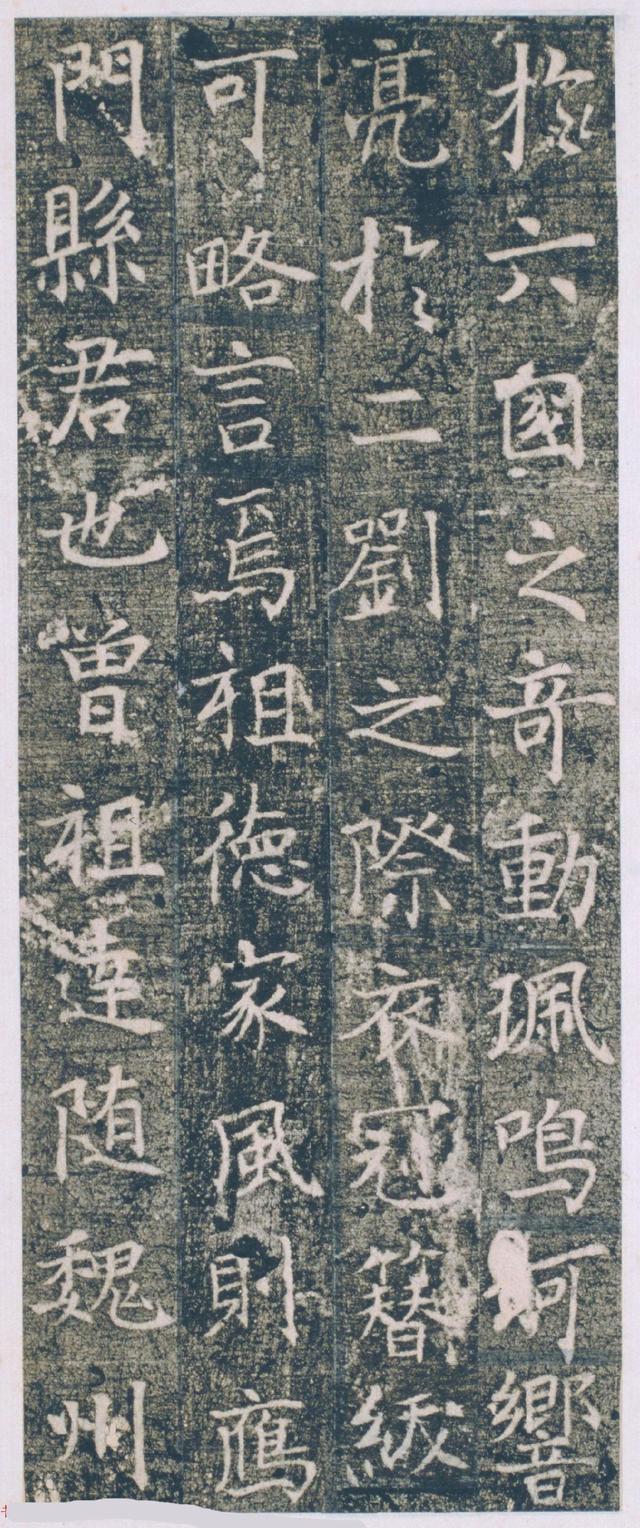 扵六國之竒動珮鳴珂響
亮扵二劉之際衣冠簪紱
可略言焉祖徳家風則鴈
門縣君也曾祖達随魏州